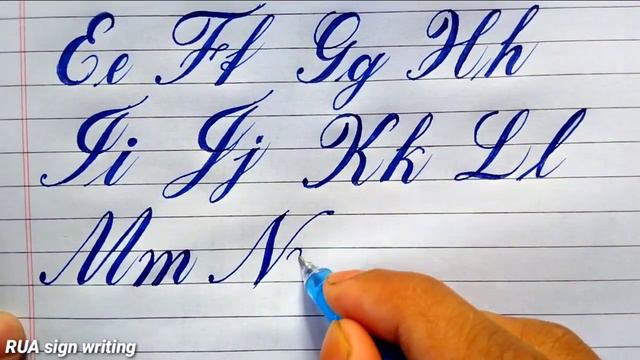 Ee Ff Gg Hh
Ii Jj Kk Ll
Mm N
RUA sign writing